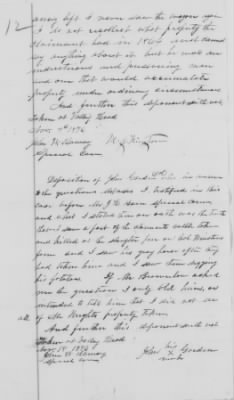 12
away left I never saw the wagon again
I do not recollect what property the
claimant had in 1864 and cannot
say anything about it but he was an
industrious and persevering man
and one that would accumulate
property under ordinary circumstances
And further this deponent saith not
Taken at Valley Head
Nov. 7th 1876
John W. Ramsey
Special Com
Deposition of John Gordon who in answer
to the questions deposes I testified in this
case before Mr J. D. special comr
and what I stated then on oath was the truth
that I saw a part of the claimants cattle taken
and killed at the slaughter pen on
farm and I saw his gray horse after they
had taken him and I saw them digging
his potatoes. If Mr Brownlow asked
me the questions I only told him, or
intended to tell him that I did not see
all of Mr Wrights property taken
And further this deponent saith not
Taken at Valley Head
Nov. 1876
John W. Ramsey
Special com
John his x mark Gordon